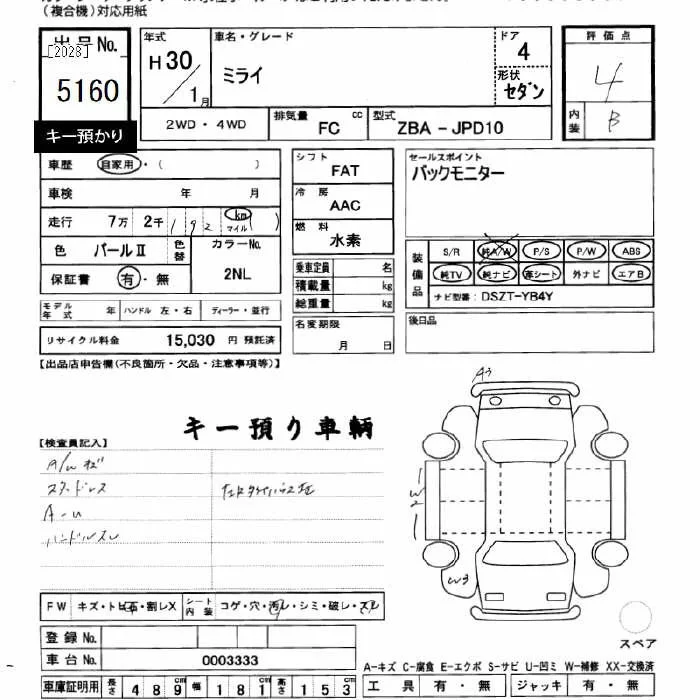 (複合機)対応用紙
出品No.
[2028]
5160
キー預かり
年式
H30/1月
車名・グレード
ミライ
ドア
4
形状
セダン
評価点
4
内装
B
2WD・4WD
排気量
FC
cc
型式
ZBA-JPD10
車歴
自家用・( )
車検 年 月
走行 7万 2千 192 km マイル ( )
色 パールⅡ 色替
カラーNo.
2NL
保証書 有・無
シフト
FAT
冷房
AAC
燃料
水素
乗車定員 名
積載量 kg
総重量 kg
セールスポイント
バックモニター
装備品
S/R 純A/W P/S P/W ABS
純TV 純ナビ 革シート 外ナビ エアB
ナビ型番:DSZT-YB4Y
モデル年式 年 ハンドル 左・右 ディーラー・並行
リサイクル料金 15,030 円 預託済
名変期限
月 日
後日品
【出品店申告欄(不良箇所・欠品・注意事項等)】
キー預り車輌
【検査員記入】
A/Wキズ
スタッドレス
A-u
ハンドルスレ
A3
W2
W3
FW キズ・トビ石・割レX
シート内装 コゲ・穴・汚レ・シミ・破レ・スレ
登録No.
車台No. 0003333
スペア
A-キズ C-腐食 E-エクボ S-サビ U-凹ミ W-補修 XX-交換済
車庫証明用 長さ 489cm 幅 181cm 高さ 153cm
工具 有・無 ジャッキ 有・無